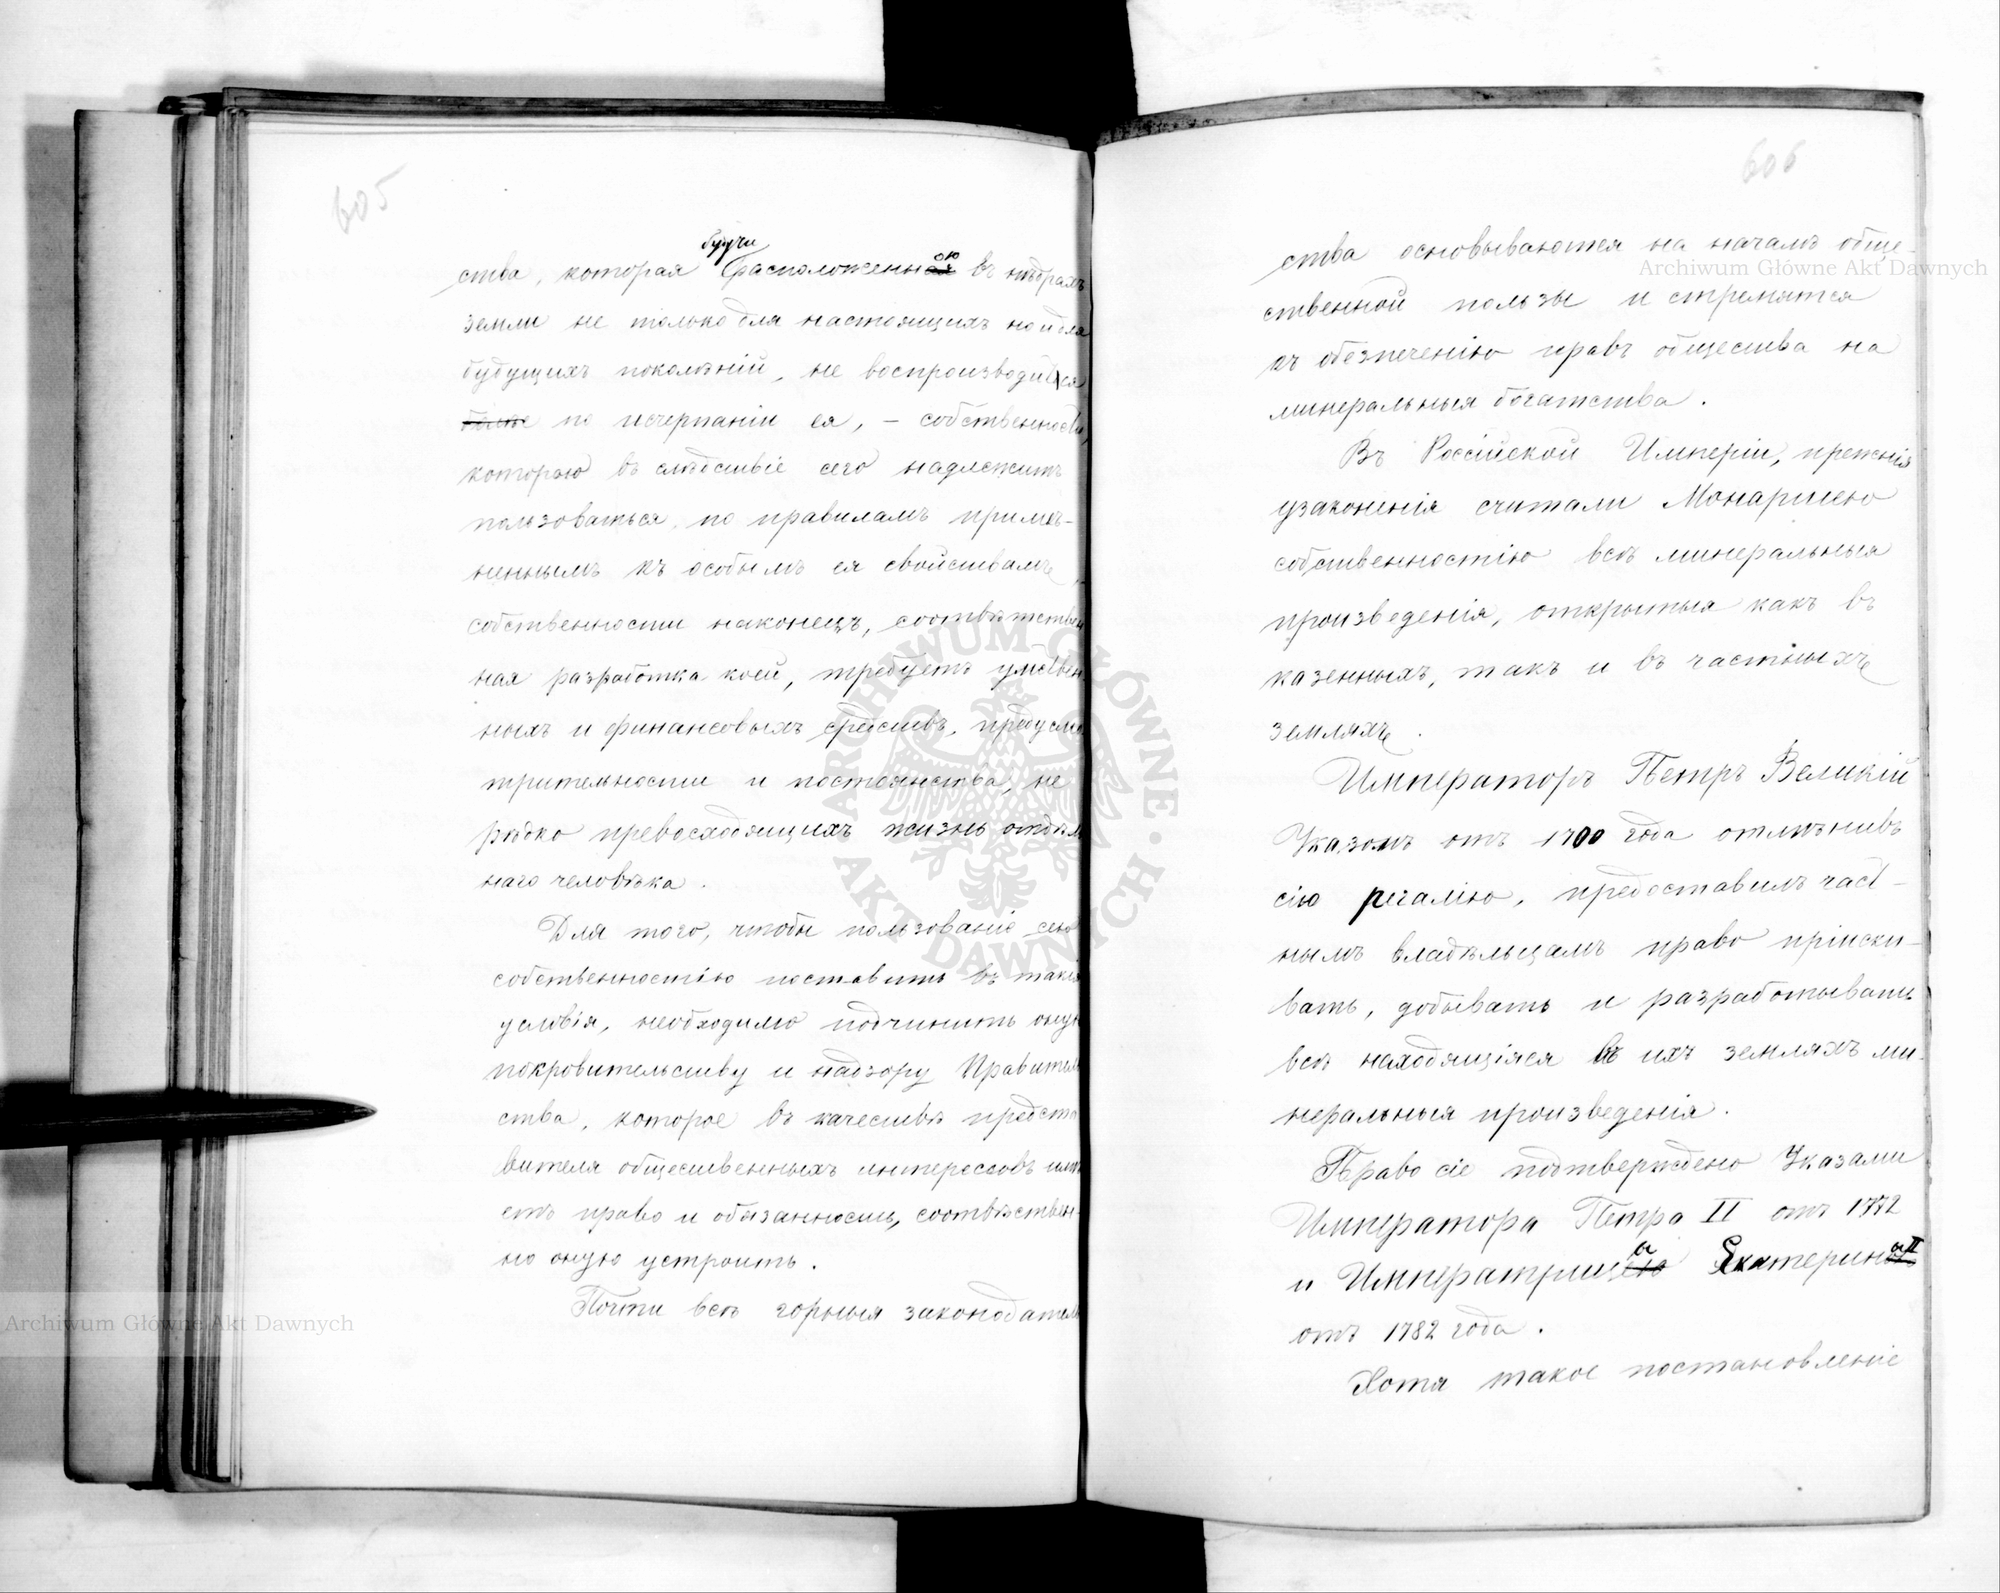 605
ства, которая будучи расположенною въ нѣдрахъ
земли не только для настоящихъ но и для
будущихъ поколѣній, не воспроизводится
болѣе по исчерпаніи ея, – собственности,
которою въ слѣдствіе сего надлежитъ
пользоваться по правиламъ примѣ-
неннымъ къ особымъ ея свойствамъ, –
собственности наконецъ, соотвѣтствен
ная разработка коей, требуетъ умствен
ныхъ и финансовыхъ средствъ, предусмо
трительности и постоянства, не
рѣдко превосходящихъ жизнь отдѣль
наго человѣка.
Для того, чтобы пользованіе сею
собственностію поставить въ такія
условія, необходимо подчинить оную
покровительству и надзору Правитель
ства, которое въ качествѣ предста
вителя общественныхъ интересовъ имѣ
етъ право и обязанность, соотвѣствен-
но оную устроить.
Почти всѣ горныя законодатель
606
ства основываются на началѣ обще-
ственной пользы и стремятся
къ обезпеченію правъ общества на
минеральныя богатства.
Въ Россійской Имперіи, прежнія
узаконенія считали Монаршею
собственностію всѣ минеральныя
произведенія, открытыя какъ въ
казенныхъ, такъ и въ частныхъ
земляхъ.
Императоръ Петръ Великій
Указомъ отъ 1700 года отмѣнивъ
сію регалію, предоставилъ част-
нымъ владѣльцамъ право пріиски-
вать, добывать и разработывать
всѣ находящіяся въ ихъ земляхъ ми-
неральныя произведенія.
Право сіе подтверждено Указами
Императора Петра II отъ 1772
и Императрица Екатерина II
отъ 1782 года.
Хотя такое постановленіе
Archiwum Główne Akt Dawnych
Archiwum Główne Akt Dawnych
ARCHIWUM GŁÓWNE AKT DAWNYCH